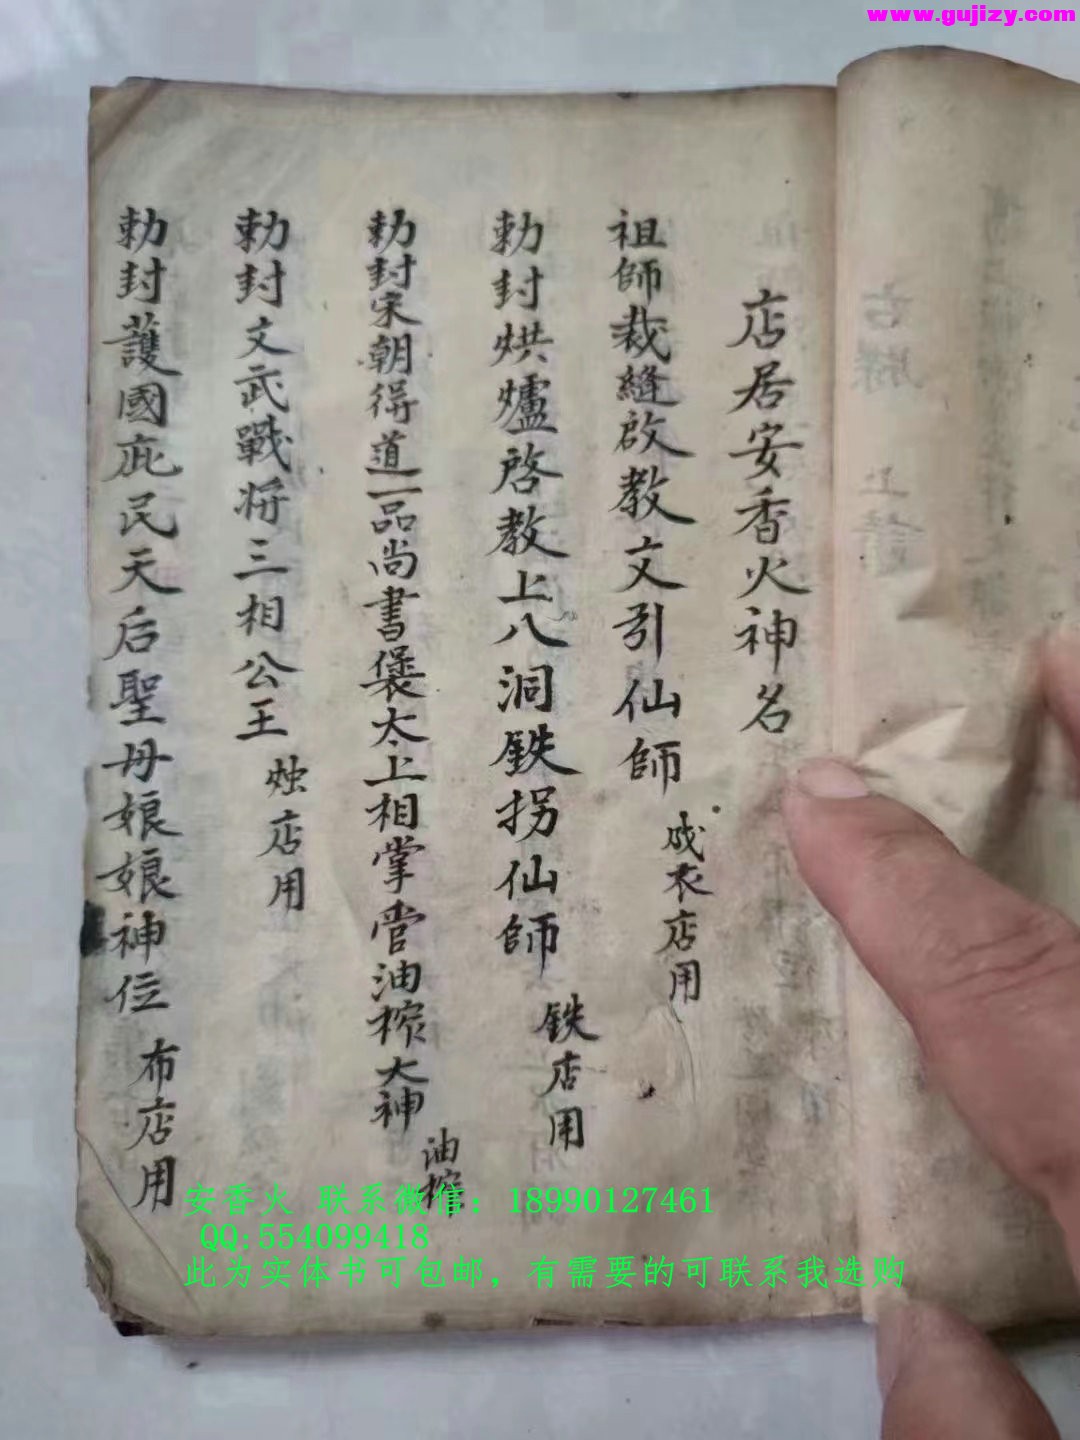 www.gujizy.com
店居安香火神名
祖師裁縫啟教文引仙師 成衣店用
勅封烘爐啓教上八洞鉄拐仙師 鉄店用
勅封宋朝得道一品尚書褒太上相掌管油榨大神 油榨
勅封文武戰将三相公王 烛店用
勅封護國庇民天后聖母娘娘神位 布店用
安香火 联系微信：18990127461
QQ:554099418
此为实体书可包邮，有需要的可联系我选购